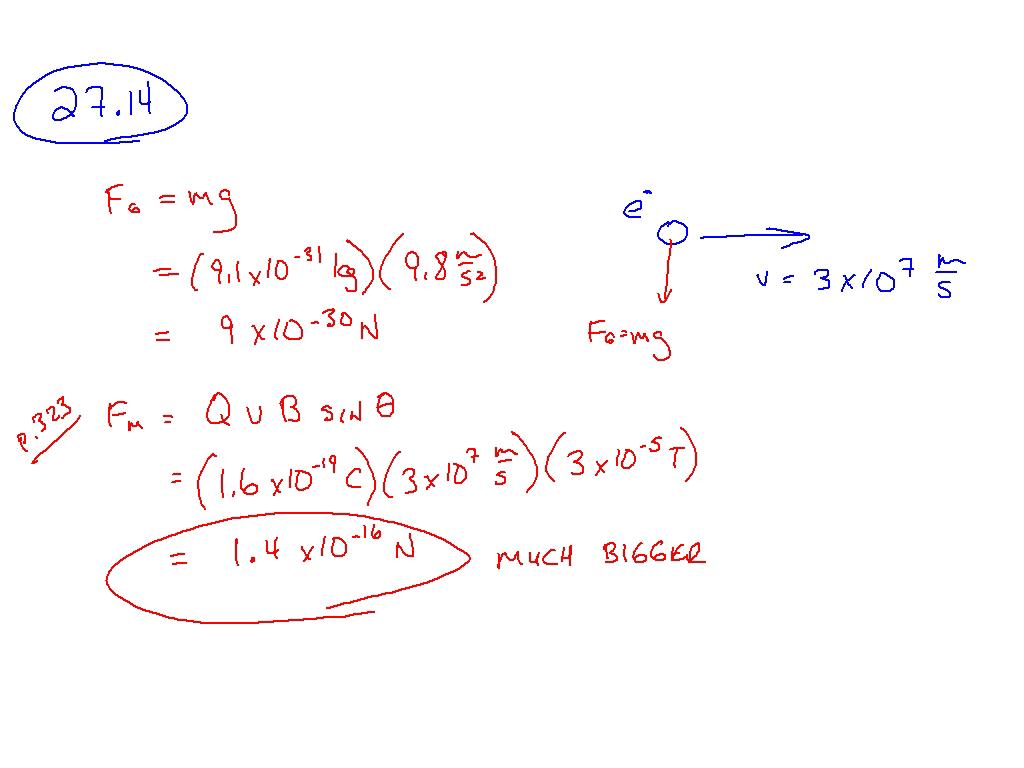 27.14
F_G = mg
= (9.1 x 10^-31 kg)(9.8 m/s²)
= 9 x 10^-30 N
e^-
v = 3 x 10^7 m/s
F_G = mg
P.323
F_M = Q v B SIN θ
= (1.6 x 10^-19 C)(3 x 10^7 m/s)(3 x 10^-5 T)
= 1.4 x 10^-16 N MUCH BIGGER